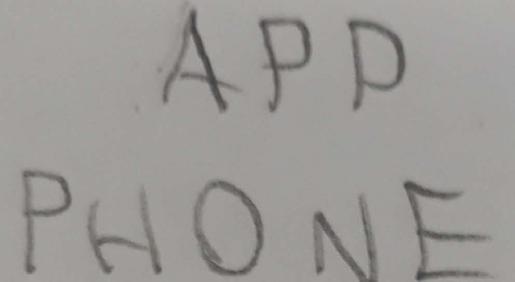 APP
PHONE